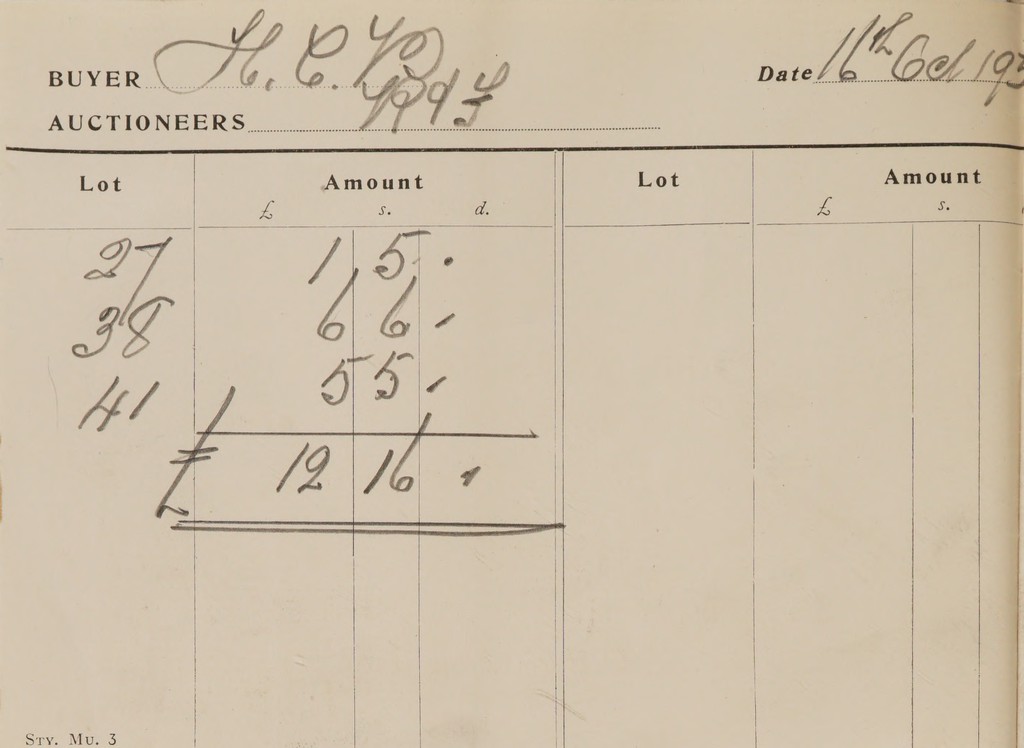 BUYER H. C.
AUCTIONEERS
Date 16th Oct 193
Lot Amount Lot Amount
£ s. d. £ s.
27 1 5 .
38 6 6 .
41 5 5 .
£ 12 16 .
STY. MU. 3